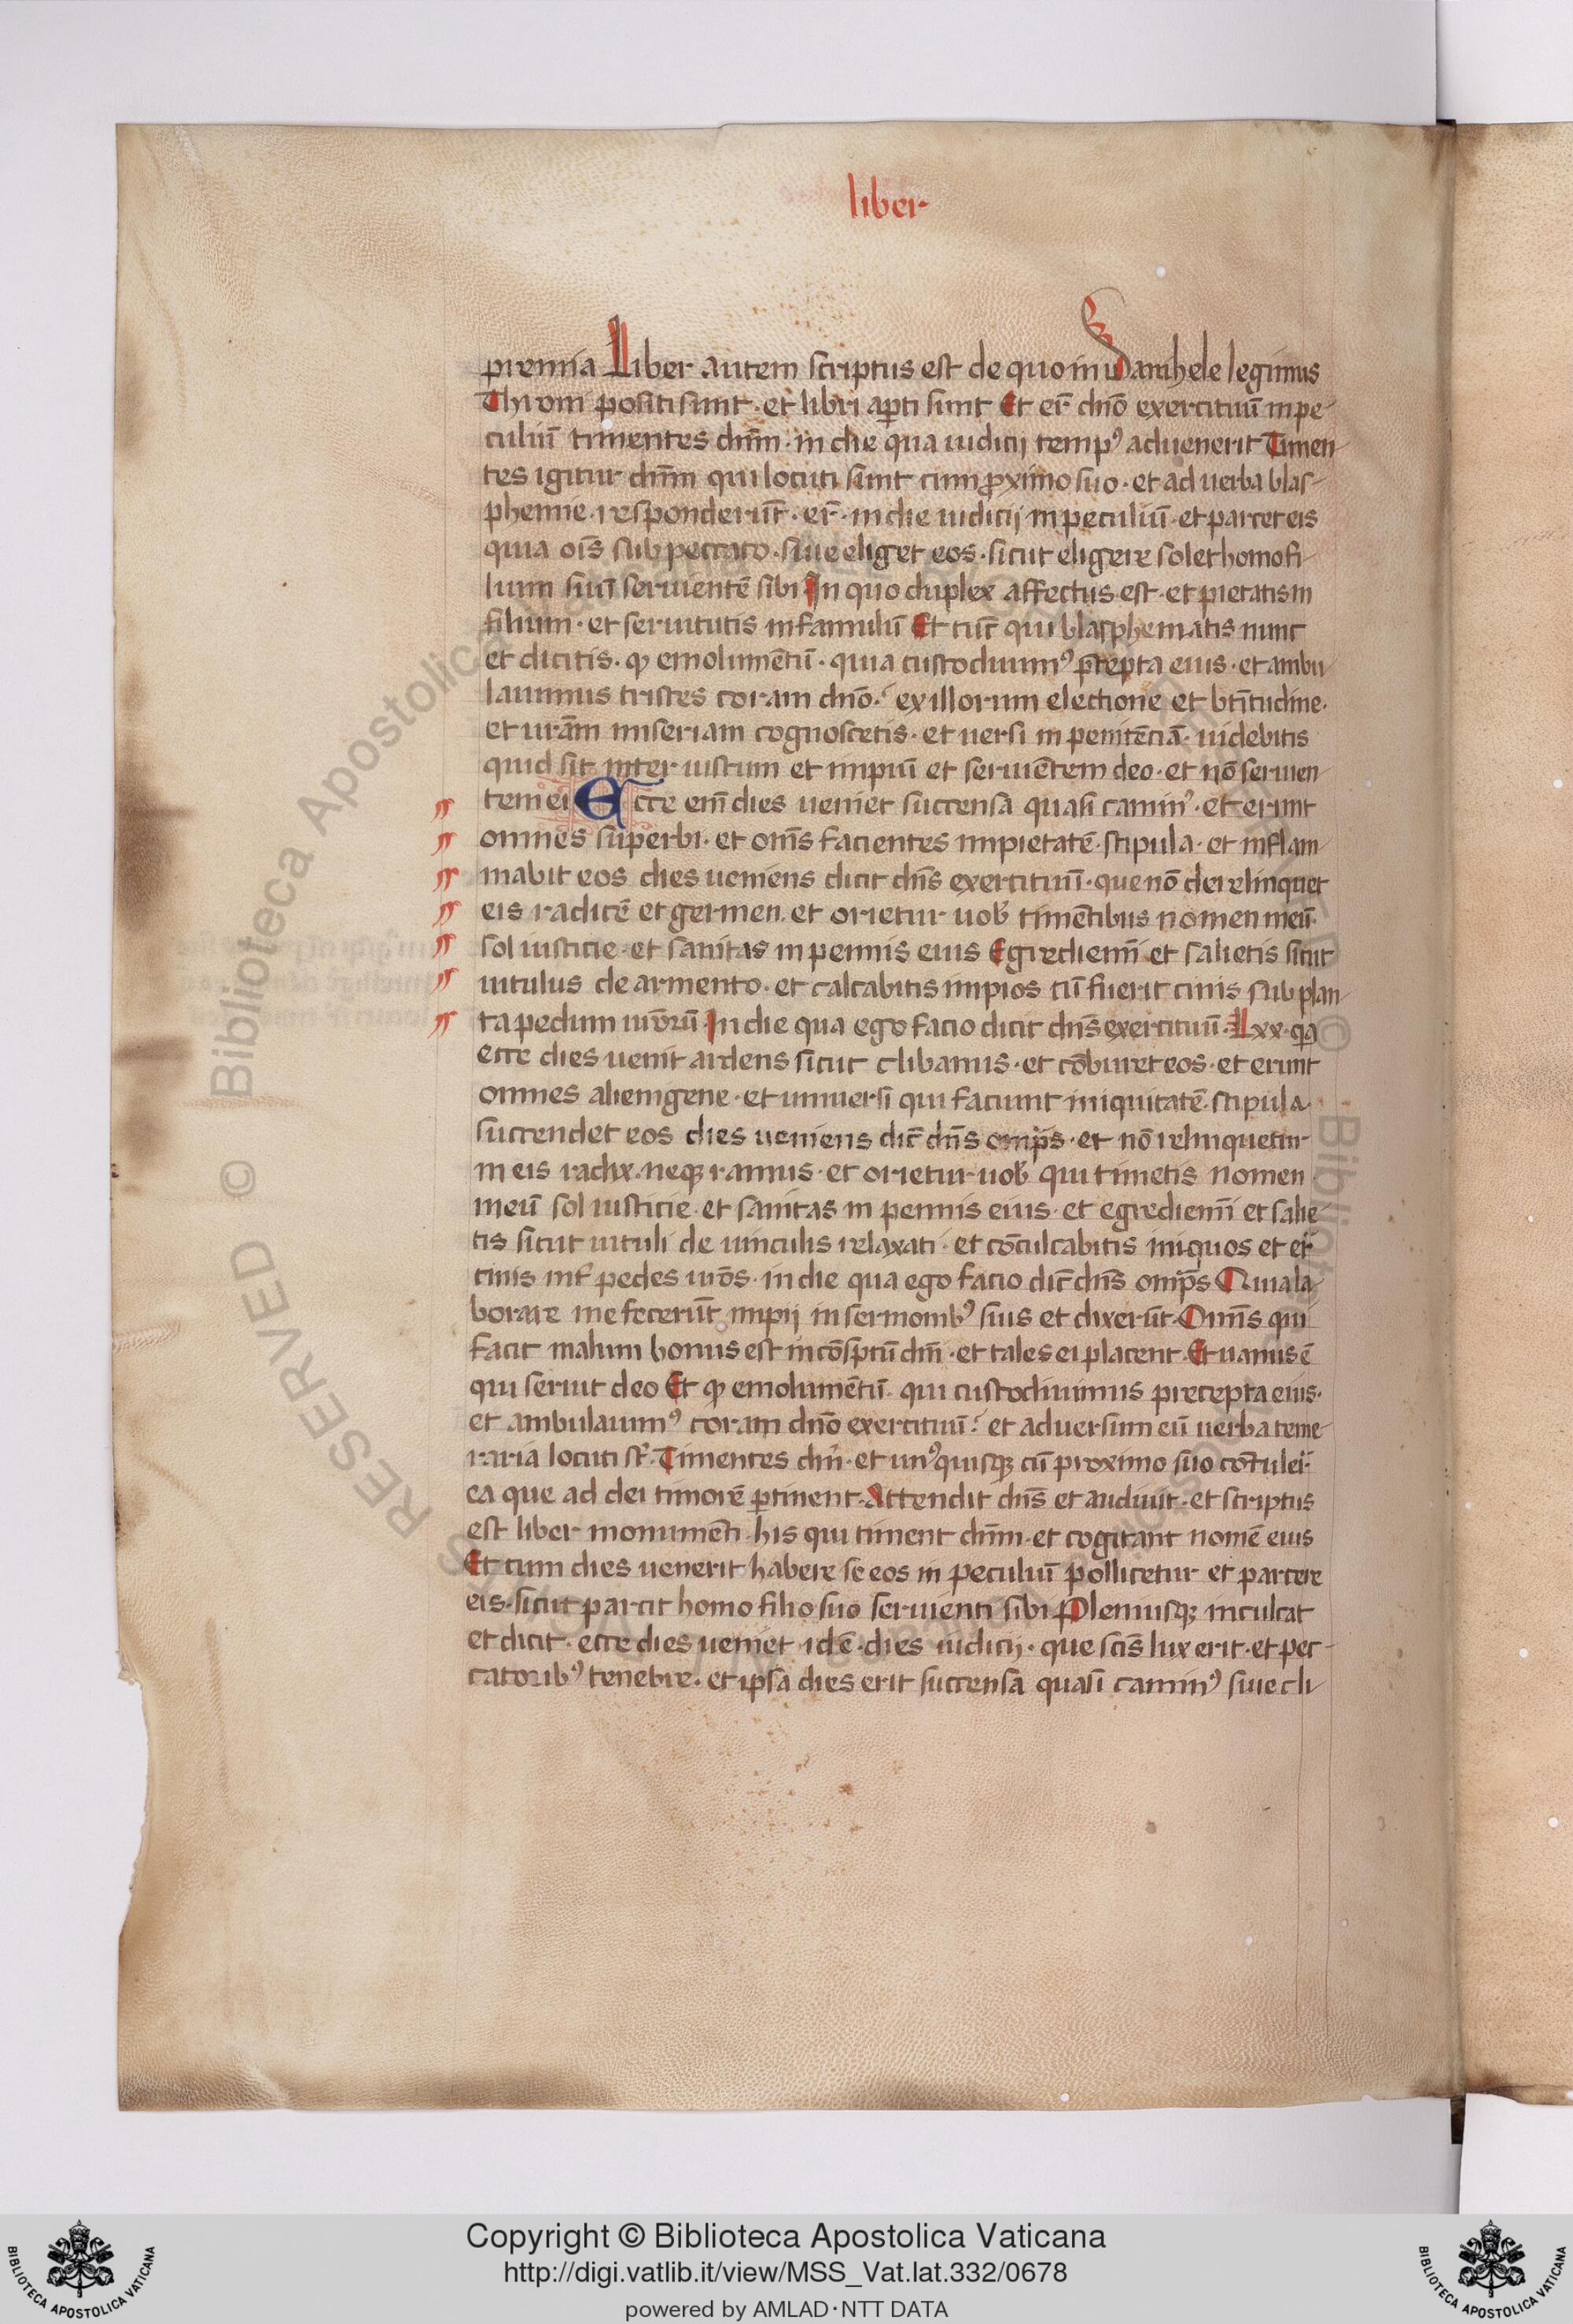 liber
premia Liber autem scriptus est de quo in Danihele legimus
Throni positi sunt · et libri ap̱ti sunt Et er̄t dn̄o exercituū in pe
culiū timentes dn̄m · in die qua iudicij temp⁹ aduenerit Timen
tes igitur dn̄m qui locuti sunt cum ꝓximo suo · et ad uerba blas
phemie responderūt · er̄t · in die iudicij in peculiū · et parcet eis
quia oīs sub peccato · siue eliget eos · sicut eligere solet homo fi
lium suū seruientē sibi In quo duplex affectus est · et pietatis in
filium · et seruitutis in famulū Et tūc qui blasphematis nunc
et dicitis · qđ emolumētū · quia custodiuim⁹ p̄cepta eius · et ambu
lauimus tristes coram dn̄o · ex illorum electione et btītudine ·
et ur̄am miseriam cognoscetis · et uersi in penitēciā · uidebitis
quid sit inter iustum et impiū et seruiētem deo · et nō seruien
tem ei Ecce em̄ dies ueniet succensa quasi camin⁹ · et erunt
omnes superbi · et om̄s facientes impietatē · stipula · et inflam
mabit eos dies ueniens dicit dn̄s exercituū · que nō derelinquet
eis radicē et germen · et orietur uob̄ timētibus nomen meū ·
sol iusticie · et sanitas in pennis eius Egrediemī et salietis sicut
uitulus de armento · et calcabitis impios cū fuerit cinis sub plan
ta pedum ur̄orū In die qua ego facio dicit dn̄s exercituū · Lxx · qa
ecce dies uenit ardens sicut clibanus · et cōburet eos · et erunt
omnes alienigene · et uniuersi qui faciunt iniquitatē · stipula ·
succendet eos dies ueniens dic̄ dn̄s omp̄s · et nō relinquetur
in eis radix · neqꝫ ramus · et orietur uob̄ qui timetis nomen
meū sol iusticie · et sanitas in pennis eius · et egrediemī et salie
tis sicut uituli de uinculis relaxati · et cōculcabitis iniquos et er̄t
cinis inf̄ pedes ur̄os · in die qua ego facio dic̄ dn̄s omp̄s Quia la
borare me fecerūt impij in sermonib⁹ suis et dixerūt · Omīs qui
facit malum bonus est in cōspectū dn̄i · et tales ei placent · Et uanus ē
qui seruit deo Et qđ emolumētū · qui custodiuimus precepta eius ·
et ambulauim⁹ coram dn̄o exercituū · et aduersum eū uerba teme
raria locuti st̄ · Timentes dn̄m · et un⁹quisqꝫ cū proximo suo cōtuler̄t
ea que ad dei timorē ꝑtinent · Attendit dn̄s et audiuit · et scriptus
est liber monumēti his qui timent dn̄m · et cogitant nomē eius
Et cum dies uenerit habere se eos in peculiū pollicetur et parcere
eis · sicut parcit homo filio suo seruienti sibi Pleniusqꝫ inculcat
et dicit · ecce dies ueniet idē · dies iudicij · que scīs lux erit · et pec
catorib⁹ tenebre · et ipsa dies erit succensa quasi camin⁹ siue cli
RESERVED © Biblioteca Apostolica
Copyright © Biblioteca Apostolica Vaticana
http://digi.vatlib.it/view/MSS_Vat.lat.332/0678
powered by AMLAD·NTT DATA
BIBLIOTECA APOSTOLICA VATICANA
BIBLIOTECA APOSTOLICA VATICANA